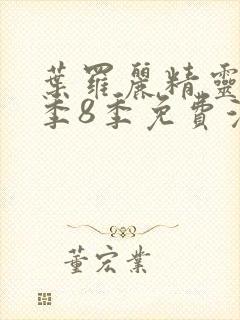 葉羅麗精靈
季8季免費
董宏業